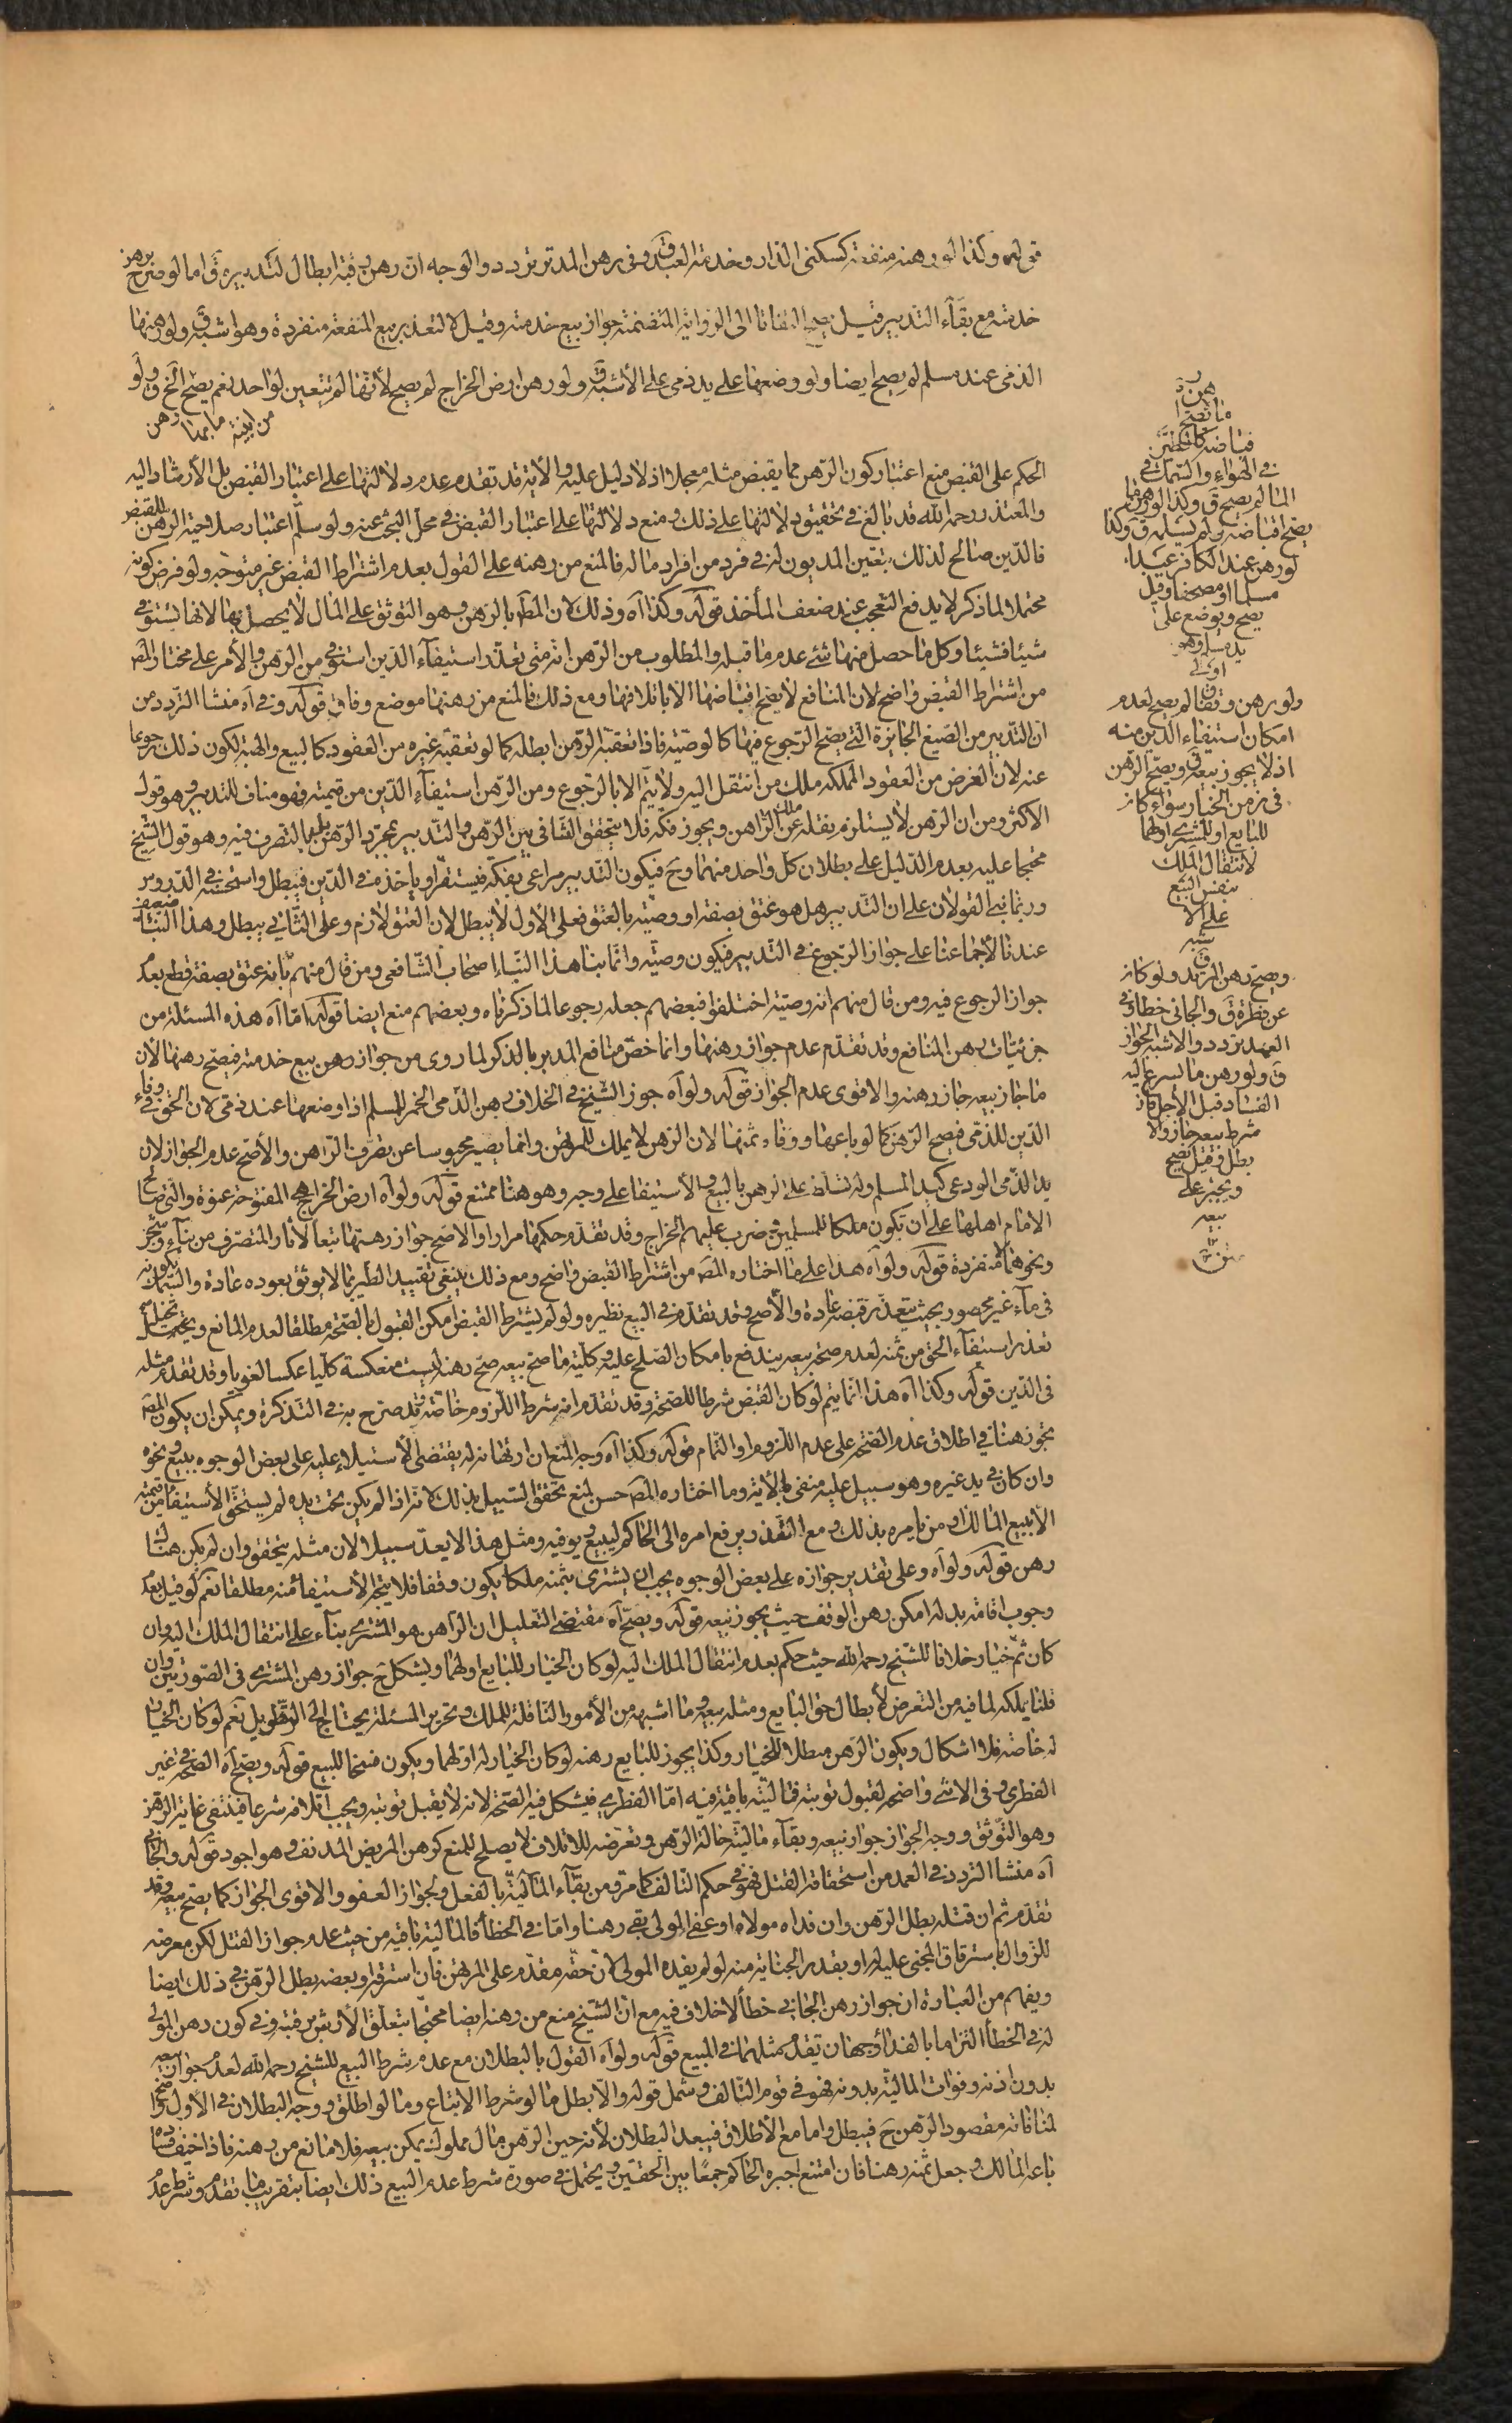 قوله وكذا لو رهنه منفعته كسكنى الدار وخدمة العبد وفى رهن المدبر تردد والوجه ان رهن رقبته ابطال لتدبيره ق اما لو صرح برهن
خدمته مع بقآء التدبير قيل يصح التفاتا الى الرواية المتضمنة جواز بيع خدمته وقيل لا لتعذر بيع المنفعة منفردة وهو اشبه ق ولو رهنها
الذمى عند مسلم لم يصح ايضا ولو وضعها على يد ذمى على الأشبه ق ولو رهن ارض الخراج لم يصح لأنها لم تتعين لواحد نعم يصح الخ ق ولو
رهن ما بها من ابنية
الحكم على القبض منع اعتبار كون الرهن مما يقبض مثله معجلا اذ لا دليل عليه والأية قد تقدم عدم دلالتها على اعتبار القبض بل الأرشاد اليه
والمعتذر رحمه الله قد بالغ فى تحقيق دلالتها على ذلك ومنع دلالتها على اعتبار القبض فى محل البحث عنه ولو سلم اعتبار صلاحية الرهن للقبض
فالدين صالح لذلك بتعين المديون له فى فرد من افراد ماله فالمنع من رهنه على القول بعدم اشتراط القبض غير متوجه ولو فرض كونه
محتملا لما ذكر لا يدفع التعجب عند ضعف المأخذ قوله وكذا آه وذلك لان المط بالرهن وهو التوثق على المال لا يحصل بها لانها تستوفى
شيئا فشيئا وكل ما حصل منها شئ عدم ما قبله والمطلوب من الرهن انه متى تعذر استيفآء الدين استوفى من الرهن والأمر على مختار المص
من اشتراط القبض واضح لان المنافع لا يصح اقباضها الا باتلافها ومع ذلك فالمنع من رهنها موضع وفاق قوله وفى آه منشا التردد من
ان التدبير من الصيغ الجايزة التى يصح الرجوع فيها كالوصية فاذا تعقبه الرهن ابطله كما لو تعقبه غيره من العقود كالبيع والهبة لكون ذلك رجوعا
عنه لان الغرض من العقود المملكة ملك من انتقل اليه ولا يتم الا بالرجوع ومن الرهن استيفآء الدين من قيمته فهو مناف للتدبير وهو قول
الأكثر ومن ان الرهن لا يستلزم نقله عن ملك الراهن ويجوز فكه فلا يتحقق التنافى بين الرهن والتدبير بمجرد الرهن بل بالتصرف فيه وهو قول الشيخ
محتجا عليه بعدم الدليل على بطلان كل واحد منهما وح فيكون التدبير مراعى بفكه فيستقر او ياخذ منه فى الدين فيبطل واستحسنه فى الدروس
وربما بنى القولان على ان التدبير هل هو عتق بصفة او وصية بالعتق فعلى الأول لا يبطل لان العتق لازم وعلى الثانى يبطل وهذا البنآء ضعيف
عندنا لأجماعنا على جواز الرجوع فى التدبير فيكون وصية وانما بنا هذا البناء اصحاب الشافعى ومن قال منهم بانه عتق بصفة قطع بعدم
جواز الرجوع فيه ومن قال منهم انه وصية اختلفوا فبعضهم جعله رجوعا لما ذكرناه وبعضهم منع ايضا قوله اما آه هذه المسئلة من
جزئيات رهن المنافع وقد تقدم عدم جواز رهنها وانما خص منافع المدبر بالذكر لما روى من جواز بيع خدمته فيصح رهنها لان
ما جاز بيعه جاز رهنه والاقوى عدم الجواز قوله ولو آه جوز الشيخ فى الخلاف رهن الذمى الخمر للمسلم اذا وضعها عند ذمى لان الحق فى وفاء
الدين للذمى فيصح الرهن كما لو باعها ووفاه ثمنها لان الرهن لا يملك للمرتهن وانما يصير محبوسا عن تصرف الراهن والأصح عدم الجواز لان
يد الذمى الودعى كيد المسلم وله تسلط على الرهن بالبيع والأستيفا على وجه وهو هنا ممتنع قوله ولو آه ارض الخراج هى المفتوحة عنوة والتى صالح
الامام اهلها على ان تكون ملكا للمسلمين وضرب عليهم الخراج وقد تقدم حكمها مرارا والاصح جواز رهنها تبعا لأثار المتصرف من بنآء وشجر
ونحوهما لا منفردة قوله ولو آه هذا على ما اختاره المص من اشتراط القبض واضح ومع ذلك ينبغى تقييد الطير بما لا يوثق بعوده عادة والسمك بكونه
فى مآء غير محصور بحيث يتعذر قبضه عادة والأصح وقد تقدم فى البيع نظيره ولو لم يشترط القبض امكن القبول بالصحة مطلقا لعدم المانع وتخيل
تعذر استيفآء الحق من ثمنه لعدم صحة بيعه يندفع بامكان الصلح عليه وكلية ما صح بيعه صح رهنه ليست منعكسة كليا عكسا لغويا وقد تقدم مثله
فى الدين قوله وكذا آه هذا انما يتم لو كان القبض شرطا للصحة وقد تقدم انه شرط اللزوم خاصة وقد صرح به فى التذكرة ويمكن ان يكون المص
تجوز هنا فى اطلاق عدم الصحة على عدم اللزوم او التمام قوله وكذا آه وجه المنع ان ارتهانه له يقتضى الأستيلاء عليه على بعض الوجوه ببيع ونحوه
وان كان فى يد غيره وهو سبيل عليه منفى بالأية وما اختاره المص حسن لمنع تحقق السبيل بذلك لانه اذا لم يكن تحت يده لم يستحق الأستيفا من قيمته
الأببيع المالك او من يامره بذلك ومع التعذر يرفع امره الى الحاكم ليبيع ويوفيه ومثل هذا لا يعد سبيلا لان مثله يتحقق وان لم يكن هناك
رهن قوله ولو آه وعلى تقدير جوازه على بعض الوجوه يجب ان يشترى بثمنه ملكا يكون وقفا فلا يتجه الأستيفا منه مطلقا نعم لو قيل بعدم
وجوب اقامة بدله امكن رهن الوقف حيث يجوز بيعه قوله ويصح آه مقتضى التعليل ان الراهن هو المشترى بنآء على انتقال الملك اليه وان
كان ثم خيار خلافا للشيخ رحمه الله حيث حكم بعدم انتقال الملك اليه لو كان الخيار للبايع او لهما ويشكل ح جواز رهن المشترى فى الصورتين وان
قلنا بملكه لما فيه من التعرض لأبطال حق البايع ومثله بيعه وما اشبهه من الأمور الناقلة للملك وتحرير المسئلة يحتاج الى تطويل نعم لو كان الخيار
له خاصة فلا اشكال ويكون الرهن مبطلا للخيار وكذا يجوز للبايع رهنه لو كان الخيار له او لهما ويكون فسخا للبيع قوله ويصح آه الصحة فى غير
الفطرى وفى الانثى واضحة لقبول توبته فماليته باقية فيه اما الفطرى فيشكل فيه الصحة لانه لا يقبل توبته ويجب اتلافه شرعا فتنتفى غاية الرهن
وهو التوثق ووجه الجواز جواز بيعه وبقآء ماليته حالة الرهن وتعرضه للاتلاف لا يصلح للمنع كرهن المريض المدنف وهو اجود قوله والجانى
آه منشأ التردد فى العمد من استحقاقه القتل فهو فى حكم التالف كما مر ومن بقآء المالية بالفعل ولجواز العفو والاقوى الجواز كما يصح بيعه وقد
تقدم ثم ان قتله بطل الرهن وان فداه مولاه او عفى المولى بقى رهنا واما فى الخطأ فالمالية باقية من حيث عدم جواز القتل لكن معرضة
للزوال باسترقاق المجنى عليه له او بقدر الجناية منه لو لم يفده المولى لان حقه مقدم على المرتهن فان استرقه او بعضه بطل الرهن فى ذلك ايضا
ويفهم من العبارة ان جواز رهن الجانى خطأ لاخلاف فيه مع ان الشيخ منع من رهنه ايضا محتجا بتعلق الأرش برقبته وفى كون رهن المولى
له فى الخطأ التزاما بالفدا وجهان تقدم مثلهما فى المبيع قوله ولو آه القول بالبطلان مع عدم شرط البيع للشيخ رحمه الله لعدم جواز بيعه
بدون اذنه وفوات المالية بدونه فهو فى قوم التالف وشمل قوله والا بطل ما لو شرط الابتاع وما لو اطلق ووجه البطلان فى الأول واضح
لمنافاته مقصود الرهن ح فيبطل واما مع الأطلاق فيبعد البطلان لأنه حين الرهن مال مملوك يمكن بيعه فلا مانع من رهنه فاذا خيف فساده
باعه المالك وجعل ثمنه رهنا فان امتنع اجبره الحاكم جمعًا بين الحقين ويحتمل فى صورة شرط عدم البيع ذلك ايضا بتقريب ما تقدم وشرط عدم
رهن
ما لا يصح ا
قباضه كالطير
فى الهواء والسمك فى
المآ لم يصح ق وكذا لو رهن ما
يصح اقباضه ولم يسلمه ق وكذا
لو رهن عند الكافر عبدا
مسلما او مصحفا وقيل
يصح ويوضع على
يد مسلم وهو
اولى
ق
ولو رهن وقفا لم يصح لعدم
امكان استيفاء الدين منه
اذ لا يجوز بيعه ق ويصح الرهن
فى زمن الخيار سواء كان
للبايع او للمشترى او لهما
لانتقال الملك
بنفس البيع
على الا
شبه
ق
ويصح رهن المرتد ولو كان
عن فطرة ق والجانى خطا وفى
العمد تردد والاشبه الجواز
ق ولو رهن ما يسرع اليه
الفساد قبل الأجل فان
شرط بيعه جاز والا
بطل وقيل يصح
ويجبر على
بيعه